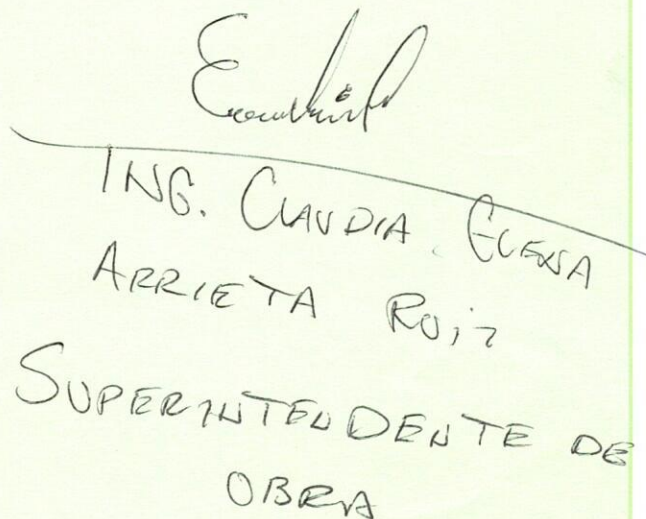 ING. CLAUDIA ELENA
ARRIETA RUIZ
SUPERINTENDENTE DE
OBRA